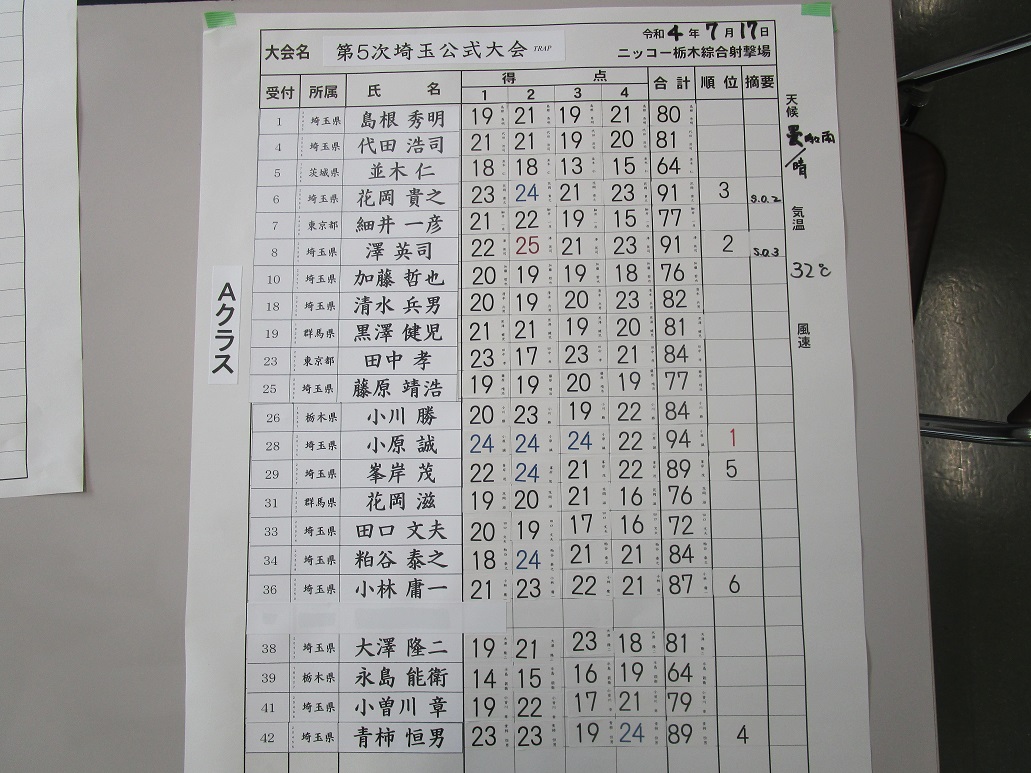 令和 4 年 7 月 17 日
大会名 第5次埼玉公式大会 TRAP ニッコー栃木綜合射撃場
受付 所属 氏 名 得 点 合計 順位 摘要
1 2 3 4
1 埼玉県 島根 秀明 19 21 19 21 80
4 埼玉県 代田 浩司 21 21 19 20 81
5 茨城県 並木 仁 18 18 13 15 64
6 埼玉県 花岡 貴之 23 24 21 23 91 3 S.O.2
7 東京都 細井 一彦 21 22 19 15 77
8 埼玉県 澤 英司 22 25 21 23 91 2 S.O.3
10 埼玉県 加藤 哲也 20 19 19 18 76
18 埼玉県 清水 兵男 20 19 20 23 82
19 群馬県 黒澤 健児 21 21 19 20 81
23 東京都 田中 孝 23 17 23 21 84
25 埼玉県 藤原 靖浩 19 19 20 19 77
26 栃木県 小川 勝 20 23 19 22 84
28 埼玉県 小原 誠 24 24 24 22 94 1
29 埼玉県 峯岸 茂 22 24 21 22 89 5
31 群馬県 花岡 滋 19 20 21 16 76
33 埼玉県 田口 文夫 20 19 17 16 72
34 埼玉県 粕谷 泰之 18 24 21 21 84
36 埼玉県 小林 庸一 21 23 22 21 87 6
38 埼玉県 大澤 隆二 19 21 23 18 81
39 栃木県 永島 能衛 14 15 16 19 64
41 埼玉県 小曽川 章 19 22 17 21 79
42 埼玉県 青柿 恒男 23 23 19 24 89 4
Aクラス
天候
曇 雨
/晴
気温
32℃
風速